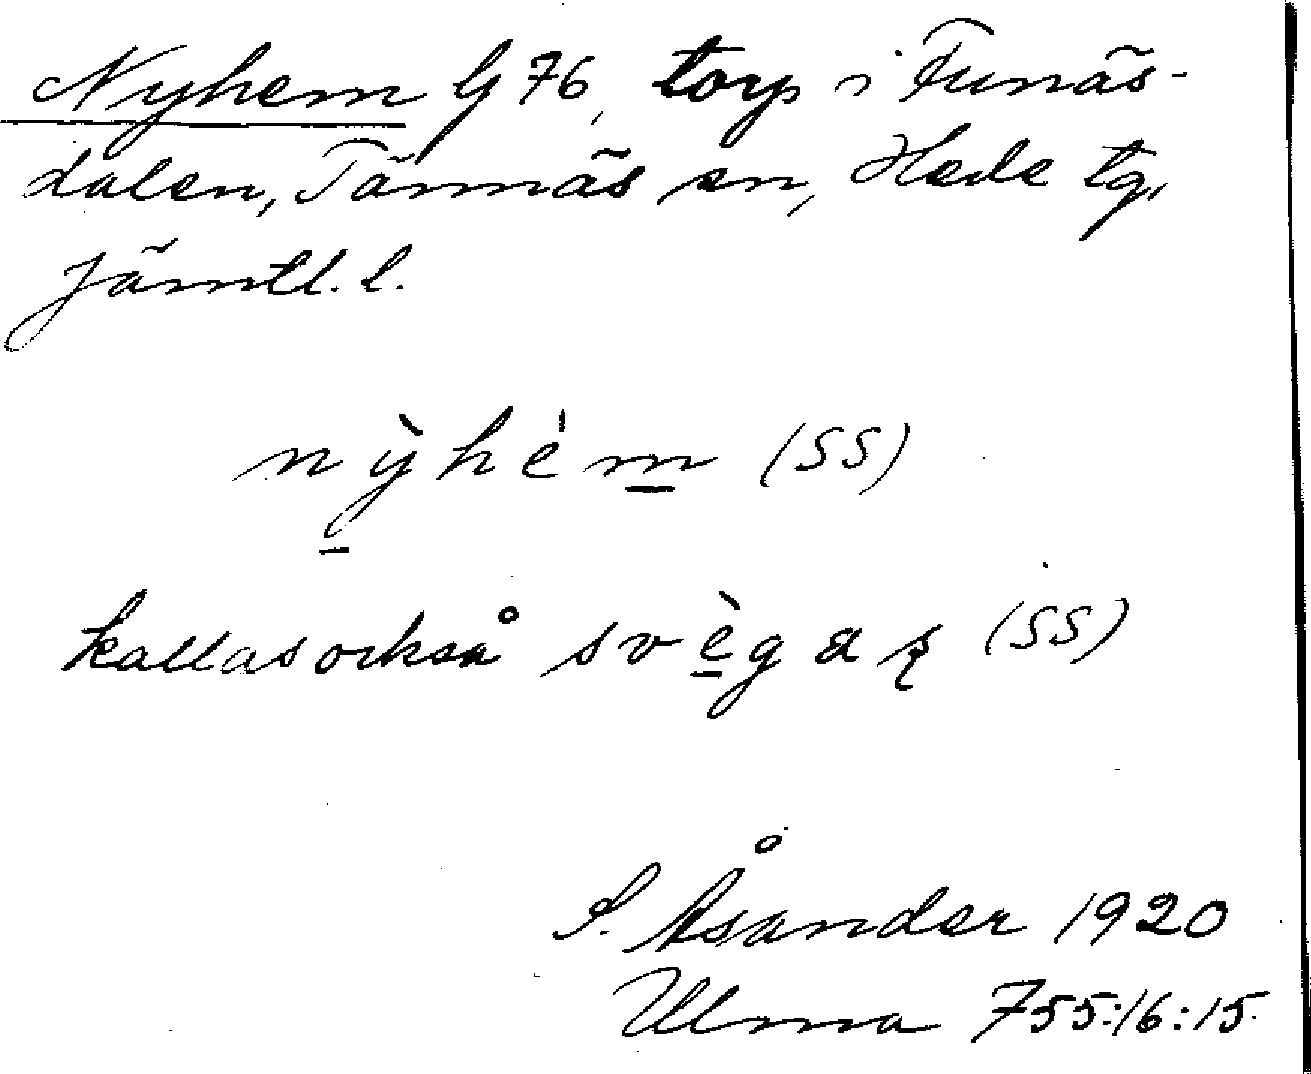 Nyhem G 76, torp i Funäs-
dalen, Tännäs sn, Hede tg,
Jämtl. l.
nỳhém (SS)
kallas också svègaʂ (SS)
S. Åsander 1920
Ulma 755:16:15.